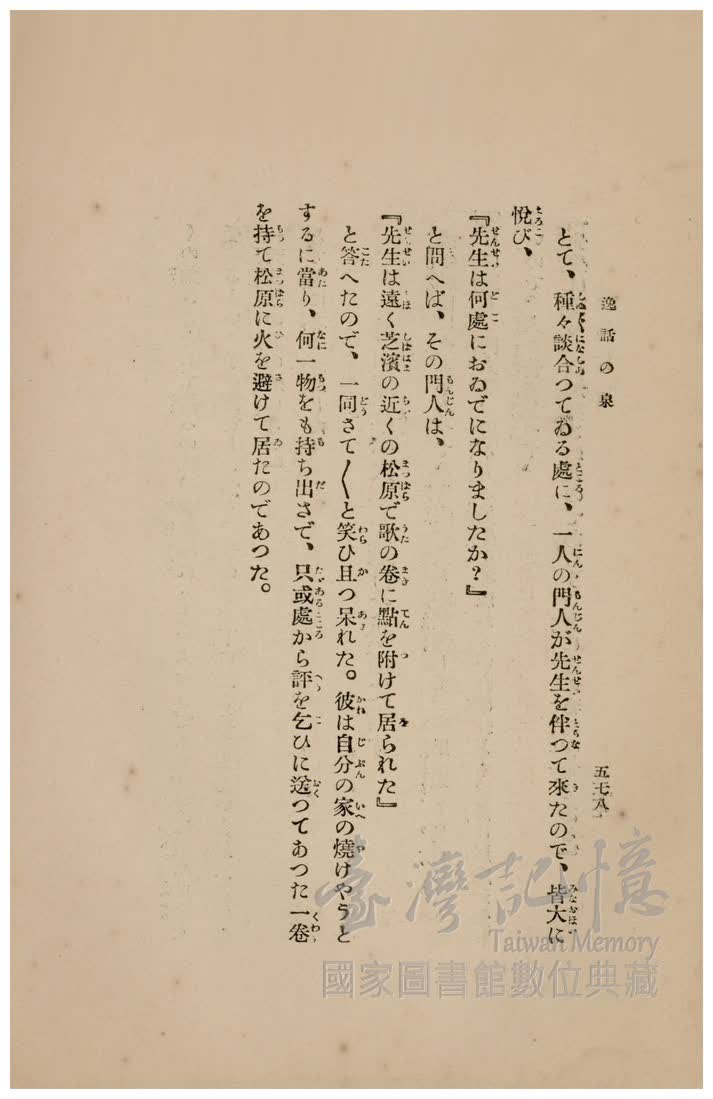 逸話の泉
五七八
とて、種々談合つてゐる處に、一人の門人が先生を伴つて來たので、皆大に
悅び、
『先生は何處におゐでになりましたか?』
と問へば、その門人は、
『先生は遠く芝濱の近くの松原で歌の卷に點を附けて居られた』
と答へたので、一同さて〱と笑ひ且つ呆れた。彼は自分の家の燒けやうと
するに當り、何一物をも持ち出さで、只或處から評を乞ひに送つてあつた一卷
を持て松原に火を避けて居たのであつた。
臺灣記憶
Taiwan Memory
國家圖書館數位典藏